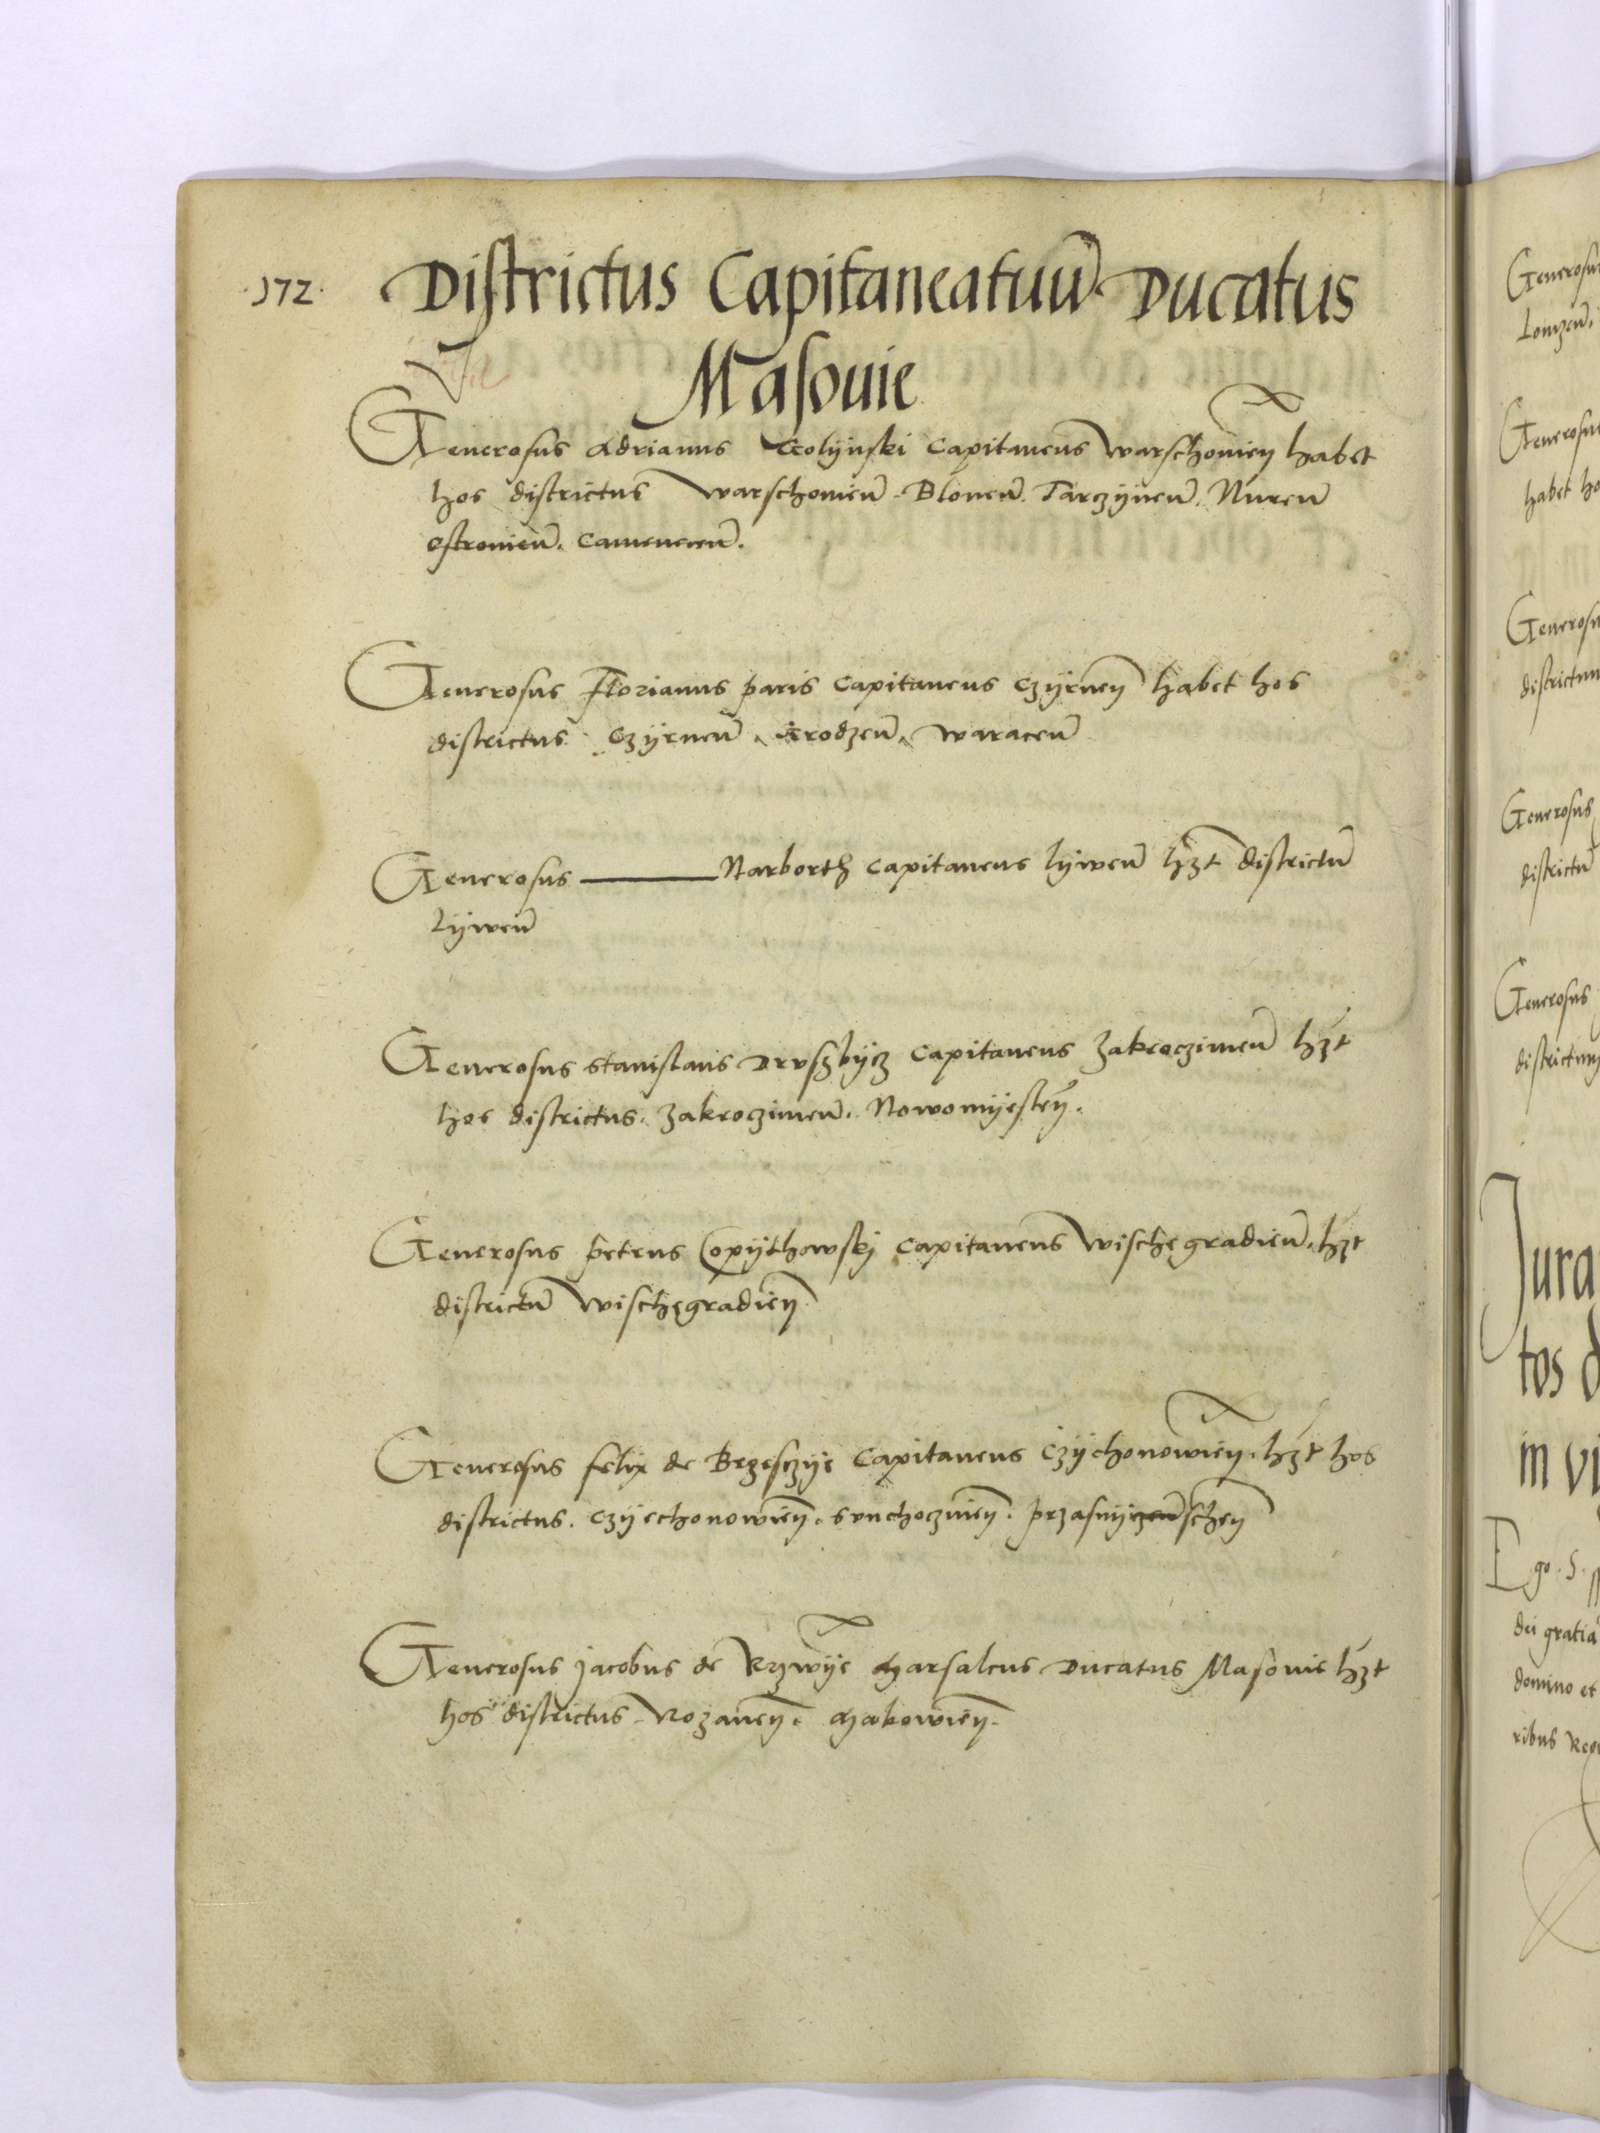 172. Districtus Capitaneatuũ Ducatus
Masouie
Generosus Adrianus Golijnski Capitaneus warschouieñ habet
hos districtus warschouieñ. Bloneñ. Tarczijneñ. Nureñ
ostrouieñ. Cameneceñ.
Generosus Florianus paris Capitaneus Czijrneñ habet hos
districtus Czijrneñ. Grodzeñ. waraceñ
Generosus ——— Narborth Capitaneus lijweñ hʒt districtũ
Lijweñ
Generosus stanislaus Drvszbijcz Capitaneus zakroczimeñ hʒt
hos districtus. zakroczimeñ. Nowomijesteñ.
Generosus petrus Copijthowskj Capitaneus wischegradieñ. hʒt
districtũ wischegradieñ
Generosus felix de Brzesczije Capitaneus Czijchonowieñ. hʒt hos
districtus. Czijechonowieñ. svnchoczineñ. przasnijscheñ
Generosus Jacobus de Krzwije Marsalcus Ducatus Masouie hʒt
hos districtus Rozaneñ. Makowieñ.
Generosus
Lomzeñ.
Generosus
habet ho
Generosu
districtum
Generosus
districtũ
Generosus
districtum
Jura
tos d
in vi
Ego. S.
dei gratia
domino et
ribus Reg